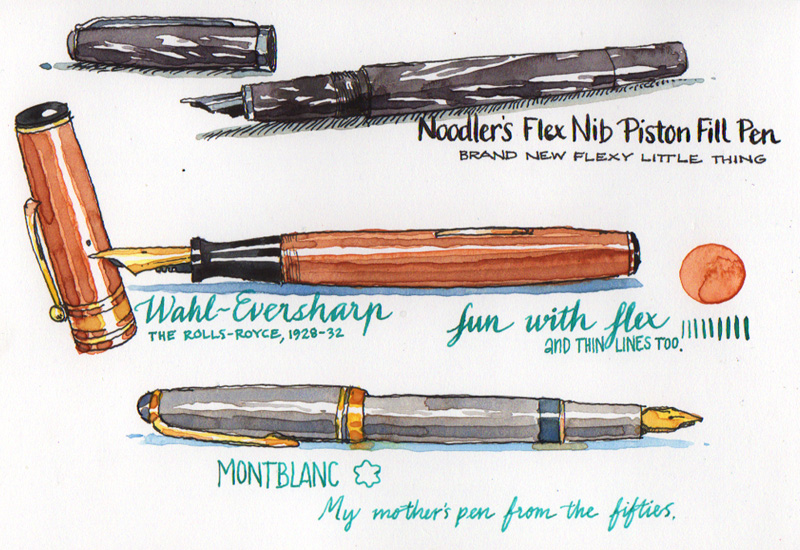 Noodler's Flex Nib Piston Fill Pen
BRAND NEW FLEXY LITTLE THING
Wahl-Eversharp
THE ROLLS-ROYCE, 1928-32
fun with flex
and THIN LINES TOO.
MONTBLANC
My mother's pen from the fifties.